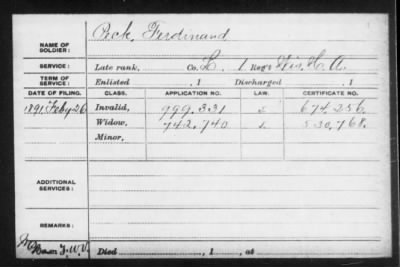 NAME OF SOLDIER: Peck, Ferdinand
SERVICE: Late rank, Co. L. 1 Reg't Wis. H. A.
TERM OF SERVICE: Enlisted , 1 Discharged , 1
DATE OF FILING. CLASS. APPLICATION NO. LAW. CERTIFICATE NO.
1891 Feby 26 Invalid, 999.331 674.256.
Widow, 742,740 530,768.
Minor,
ADDITIONAL SERVICES:
REMARKS:
Died , 1 , at